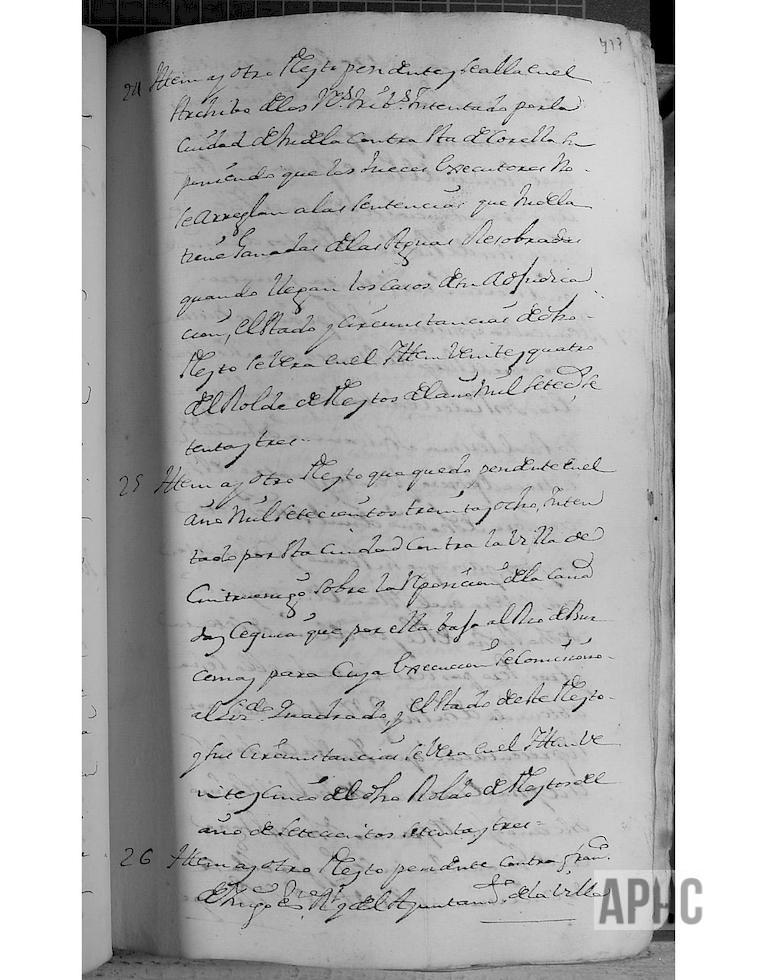 717
24 Ittem ay otro Pleyto pendente, y se alla en el
Archibo de los Rs. Tribs. Intentado por la
Ciudad de Tudela Contra sta de Corella su
poniendo que los Jueces Executores No
se Arreglan a las Sentencias que Tudela
tiene Ganadas de las Aguas Resobradas
quando llegan los Casos de su Adjudica
cion, el stado y Circunstancias de dho
Pleyto se Vera en el Ittem Veinte y quatro
del Rolde de Pleytos del año Mil Setecs. se
tenta y tres
25 Ittem ay otro Pleyto que quedo pendente en el
año Mil Setecientos treinta y ocho, Inten
tado por sta Ciudad Contra la Villa de
Cintruenigo Sobre la
Cequia que por ella baja al Rio de
para Cuya Execucion se Comisiono
al Quadrado, y el stado de ste Pleyto
y sus Circunstancias se Vera en el Ittem Ve
inte y Cinco del dho Rolde de Pleytos del
año de Setecientos Setenta y tres
26 Ittem ay otro Pleyto pendente Contra
del Ayuntam. de la Villa
APHC